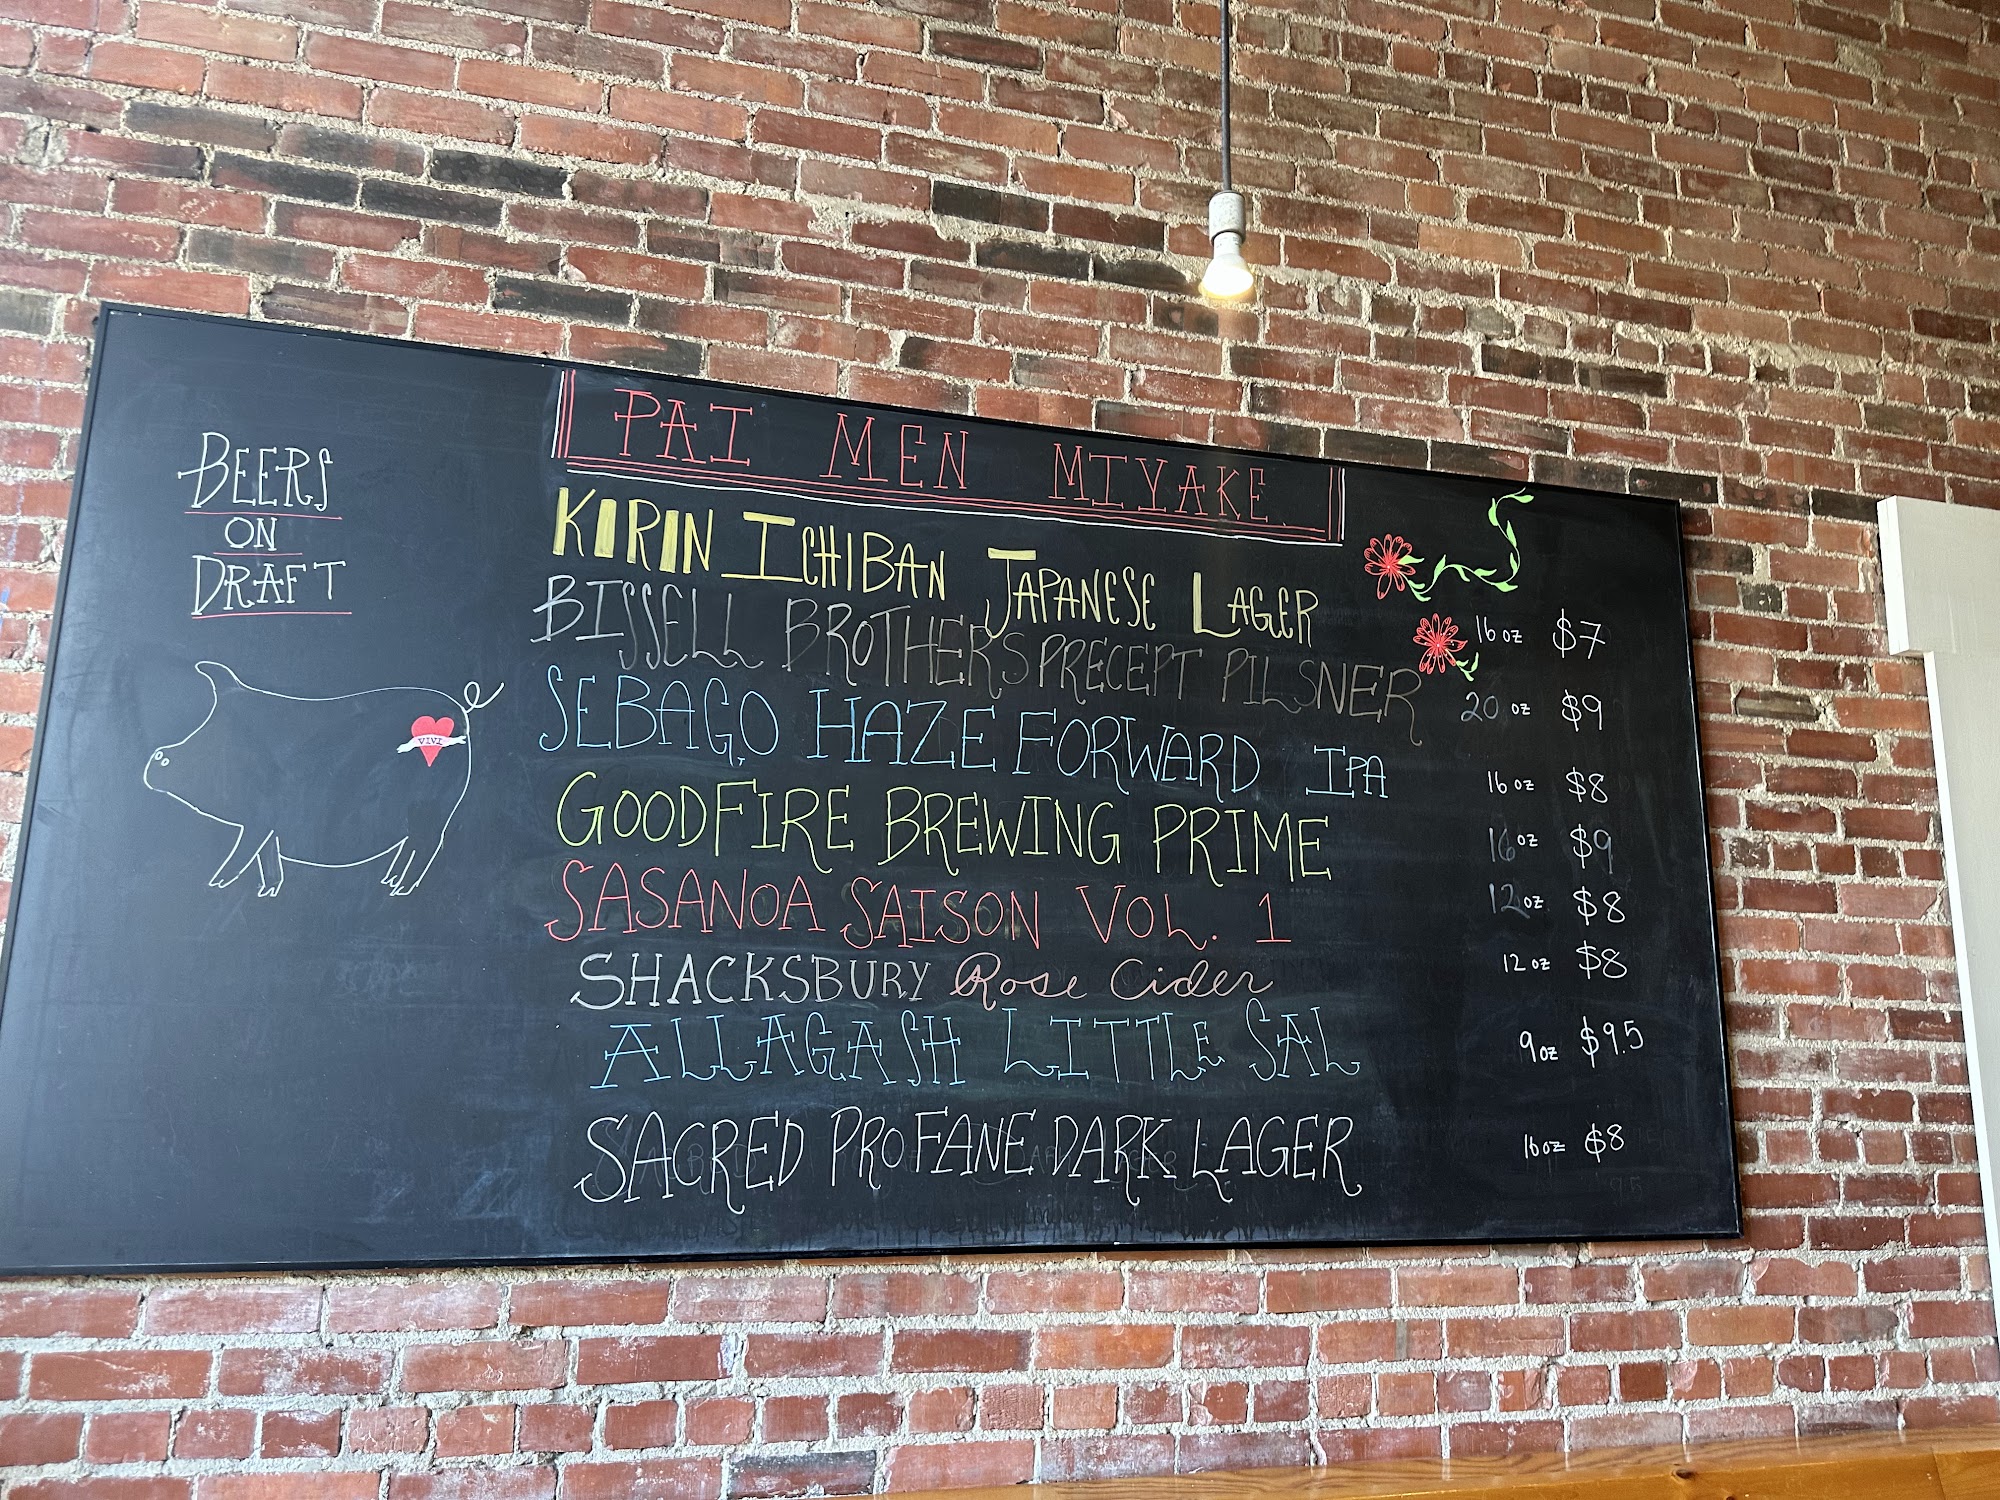 BEERS
ON
DRAFT
VIVI
PAI MEN MIYAKE
KIRIN ICHIBAN JAPANESE LAGER 16 oz $7
BISSELL BROTHERS PRECEPT PILSNER 20 oz $9
SEBAGO HAZE FORWARD IPA 16 oz $8
GOODFIRE BREWING PRIME 16 oz $9
SASANOA SAISON VOL. 1 12 oz $8
SHACKSBURY Rose Cider 12 oz $8
ALLAGASH LITTLE SAL 9 oz $9.5
SACRED PROFANE DARK LAGER 16 oz $8